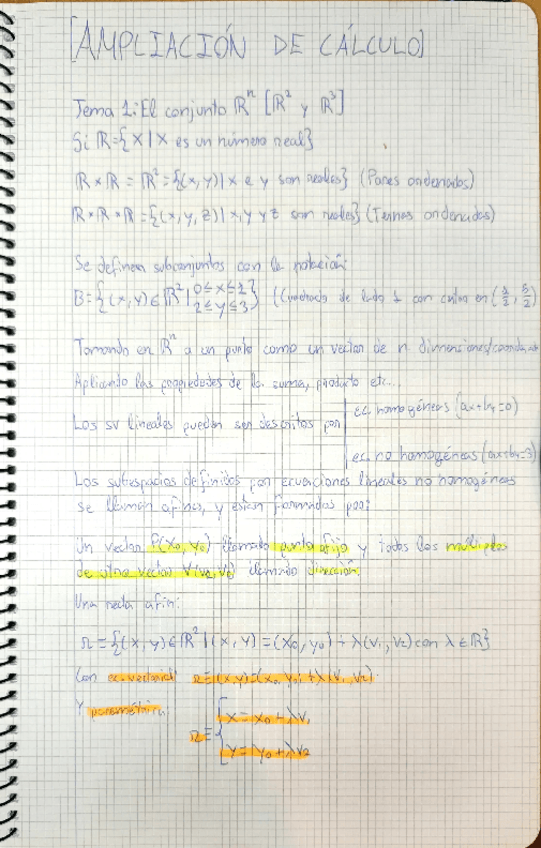 [AMPLIACIÓN DE CÁLCULO]
Tema 1: El conjunto ℝⁿ [ℝ² y ℝ³]
Si ℝ={x|x es un número real}
ℝ×ℝ = ℝ² = {(x,y)|x e y son reales} (Pares ordenados)
ℝ×ℝ×ℝ = {(x,y,z)|x,y y z son reales} (Ternas ordenadas)
Se definen subconjuntos con la notación:
B={(x,y)∈ℝ² | 0≤x≤1
2≤y≤3} (Cuadrado de lado 1 con centro en (1/2, 5/2)
Tomando en ℝⁿ a un punto como un vector de n dimensiones/coordenadas
Aplicando las propiedades de la suma, producto etc...
Los sv lineales pueden ser descritos por
ec. homogéneas (ax+by=0)
ec. no homogéneas
Los subespacios definidos por ecuaciones lineales no homogéneas
se llaman afines, y estan formados por:
Un vector P(x₀,y₀) llamado punto fijo y todos los múltiplos
de otro vector V(v₁,v₂) llamado dirección.
Una recta afín:
r={(x,y)∈ℝ² | (x,y)=(x₀,y₀)+λ(v₁,v₂) con λ∈ℝ}
Con ec. vectorial r≡(x,y)=(x₀,y₀)+λ(v₁,v₂).
Y paramétrica:
r≡{x=x₀+λv₁
y=y₀+λv₂